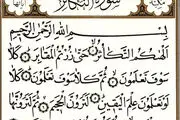 سورة التكاثر
بِسْمِ اللَّهِ الرَّحْمَٰنِ الرَّحِيمِ
أَلْهَاكُمُ التَّكَاثُرُ حَتَّىٰ زُرْتُمُ الْمَقَابِرَ كَلَّا
سَوْفَ تَعْلَمُونَ ثُمَّ كَلَّا سَوْفَ تَعْلَمُونَ كَلَّا
لَوْ تَعْلَمُونَ عِلْمَ الْيَقِينِ لَتَرَوُنَّ الْجَحِيمَ ثُمَّ لَتَرَوُنَّهَا